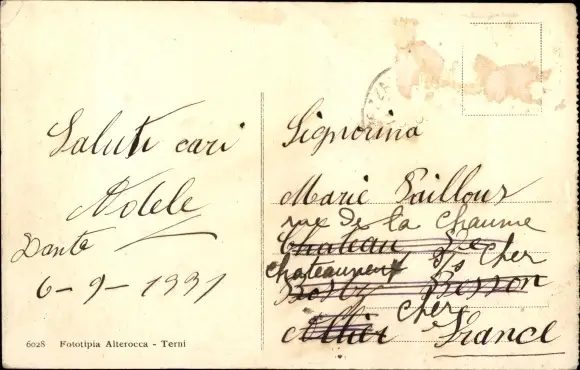 Saluti cari
Adele
Dante
6-9-1931
6028 Fototipia Alterocca - Terni
Signorina
Marie Pailloux
rue de la Chaume
Chateau de
Chateauneuf s/ Cher
Besson
Cher
Allier France